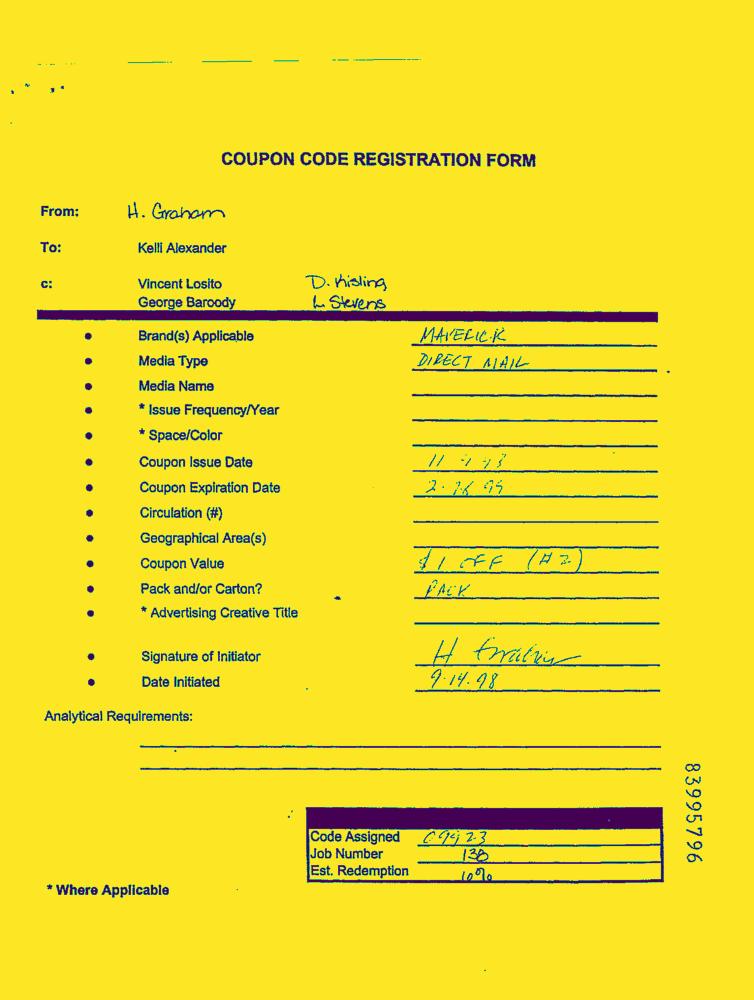 COUPON CODE REGISTRATION FORM
From: H. Graham
To: Kelli Alexander
c: Vincent Losito D. Kisling
George Baroody L Stevens
Brand(s) Applicable MAVERICK
Media Type DIRECT MAIL
Media Name
* Issue Frequency/Year
* Space/Color
Coupon Issue Date 11
Coupon Expiration Date 2-28 99
Circulation (#)
Geographical Area(s)
Coupon Value $1 OFF (#2)
Pack and/or Carton? PACK
* Advertising Creative Title
Signature of Initiator H Graham
Date Initiated 9.14.98
Analytical Requirements:
83995796
Code Assigned 09923
Job Number 138
Est. Redemption 10%
* Where Applicable